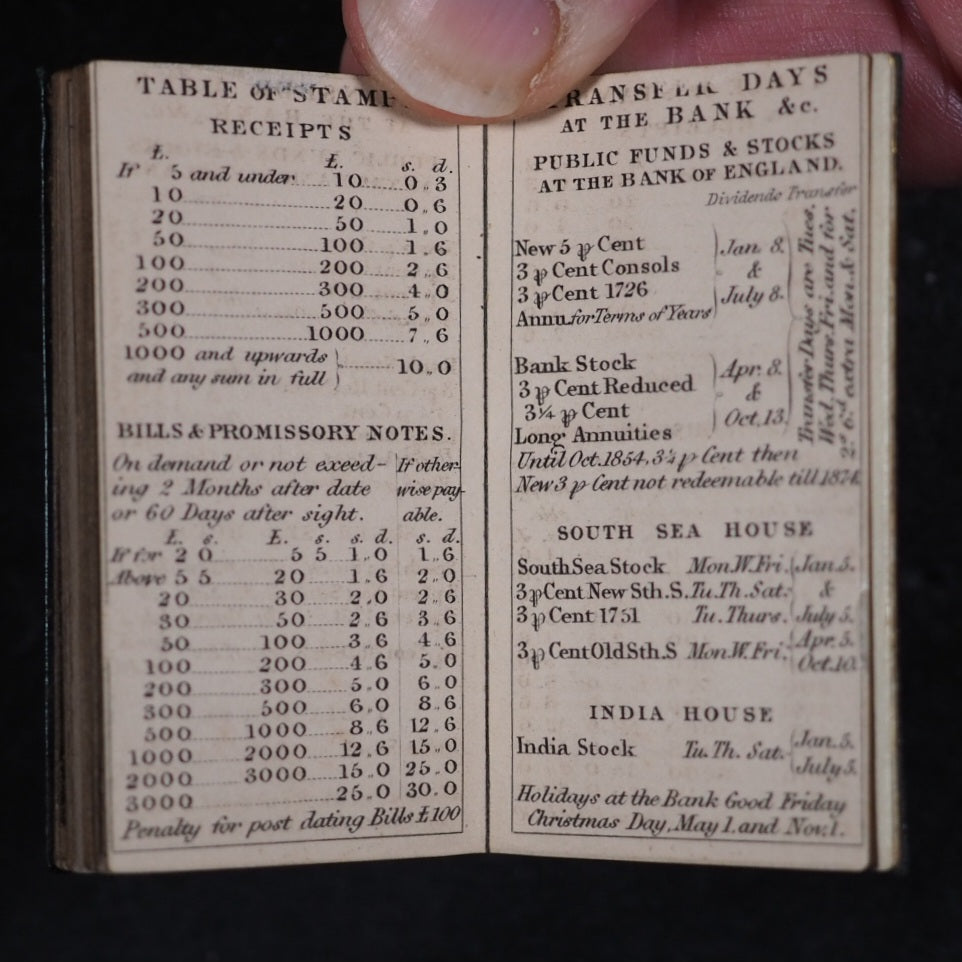 TABLE OF STAMP
RECEIPTS
£. £. s. d.
If 5 and under......10......0..3
10..................20......0..6
20..................50......1..0
50.................100......1..6
100................200......2..6
200................300......4..0
300................500......5..0
500...............1000......7..6
1000 and upwards
and any sum in full } ......10..0
BILLS & PROMISSORY NOTES.
On demand or not exceed- If other-
ing 2 Months after date wise pay-
or 60 Days after sight. able.
£. s. £. s. s. d. s. d.
If for 2 0 5 5 1..0 1..6
Above 5 5 20......1..6 2..0
20............30......2..0 2..6
30............50......2..6 3..6
50...........100......3..6 4..6
100..........200......4..6 5..0
200..........300......5..0 6..0
300..........500......6..0 8..6
500.........1000......8..6 12..6
1000........2000......12..6 15..0
2000........3000......15..0 25..0
3000..................25..0 30..0
Penalty for post dating Bills £100
TRANSFER DAYS
AT THE BANK &c.
PUBLIC FUNDS & STOCKS
AT THE BANK OF ENGLAND.
Dividends Transfer
New 5 p Cent
3 p Cent Consols
3 p Cent 1726
Annu. for Terms of Years
Jan. 8.
&
July 8.
Bank Stock
3 p Cent Reduced
3¼ p Cent
Long Annuities
Apr. 8.
&
Oct. 13.
Transfer Days are Tues.
Wed. Thurs. Fri. and for
2s. 6d. extra Mon. & Sat.
Until Oct. 1854, 3¼ p Cent then
New 3 p Cent not redeemable till 1874
SOUTH SEA HOUSE
South Sea Stock Mon. W. Fri. Jan. 5.
3 p Cent New Sth. S. Tu. Th. Sat. &
3 p Cent 1751 Tu. Thurs. July 5.
3 p Cent Old Sth. S Mon. W. Fri. Apr. 5.
Oct. 10.
INDIA HOUSE
India Stock Tu. Th. Sat. Jan. 5.
July 5.
Holidays at the Bank Good Friday
Christmas Day, May 1. and Nov. 1.